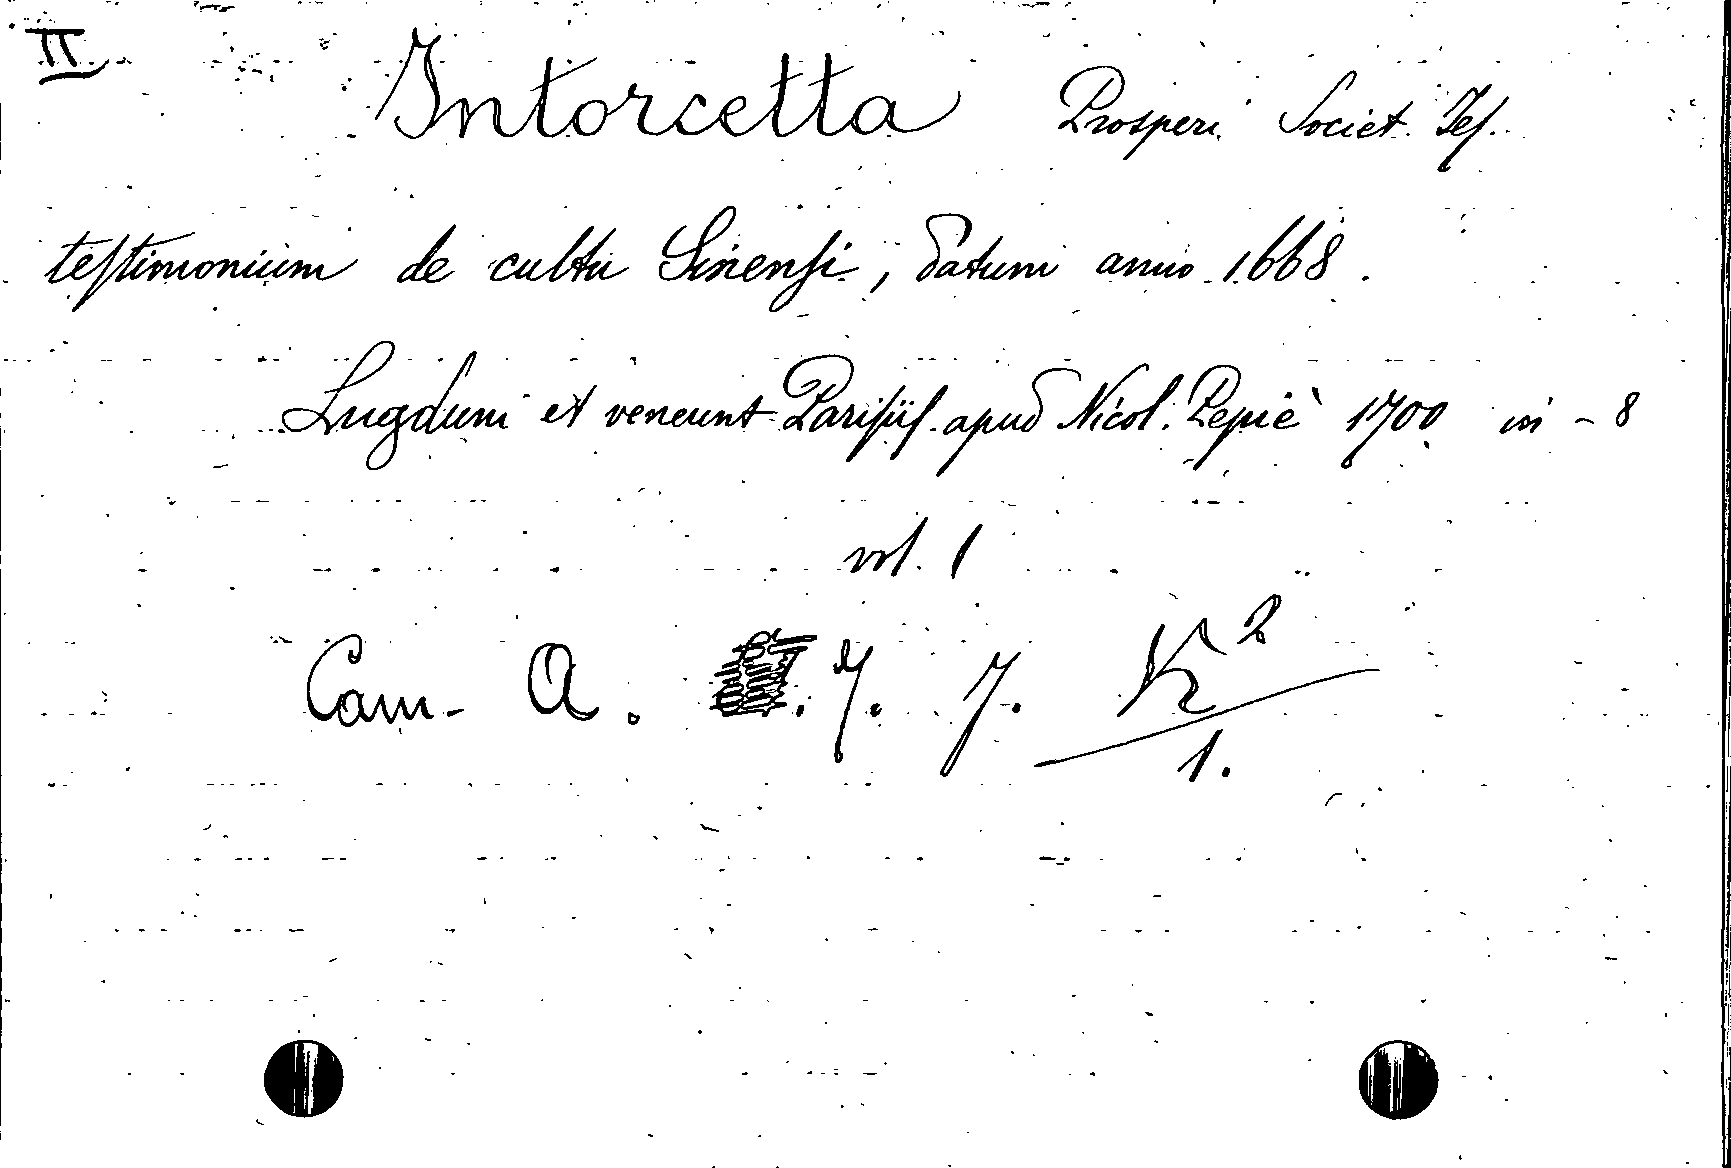 II
Intorcetta Prosperi Societ. Jes.
testimonium de cultu Sinensi, datum anno 1668.
Lugduni et veneunt Parisiis apud Nicol. Pepiè 1700 in-8
vol. 1
Cam. A. 7. 7. K²
1.